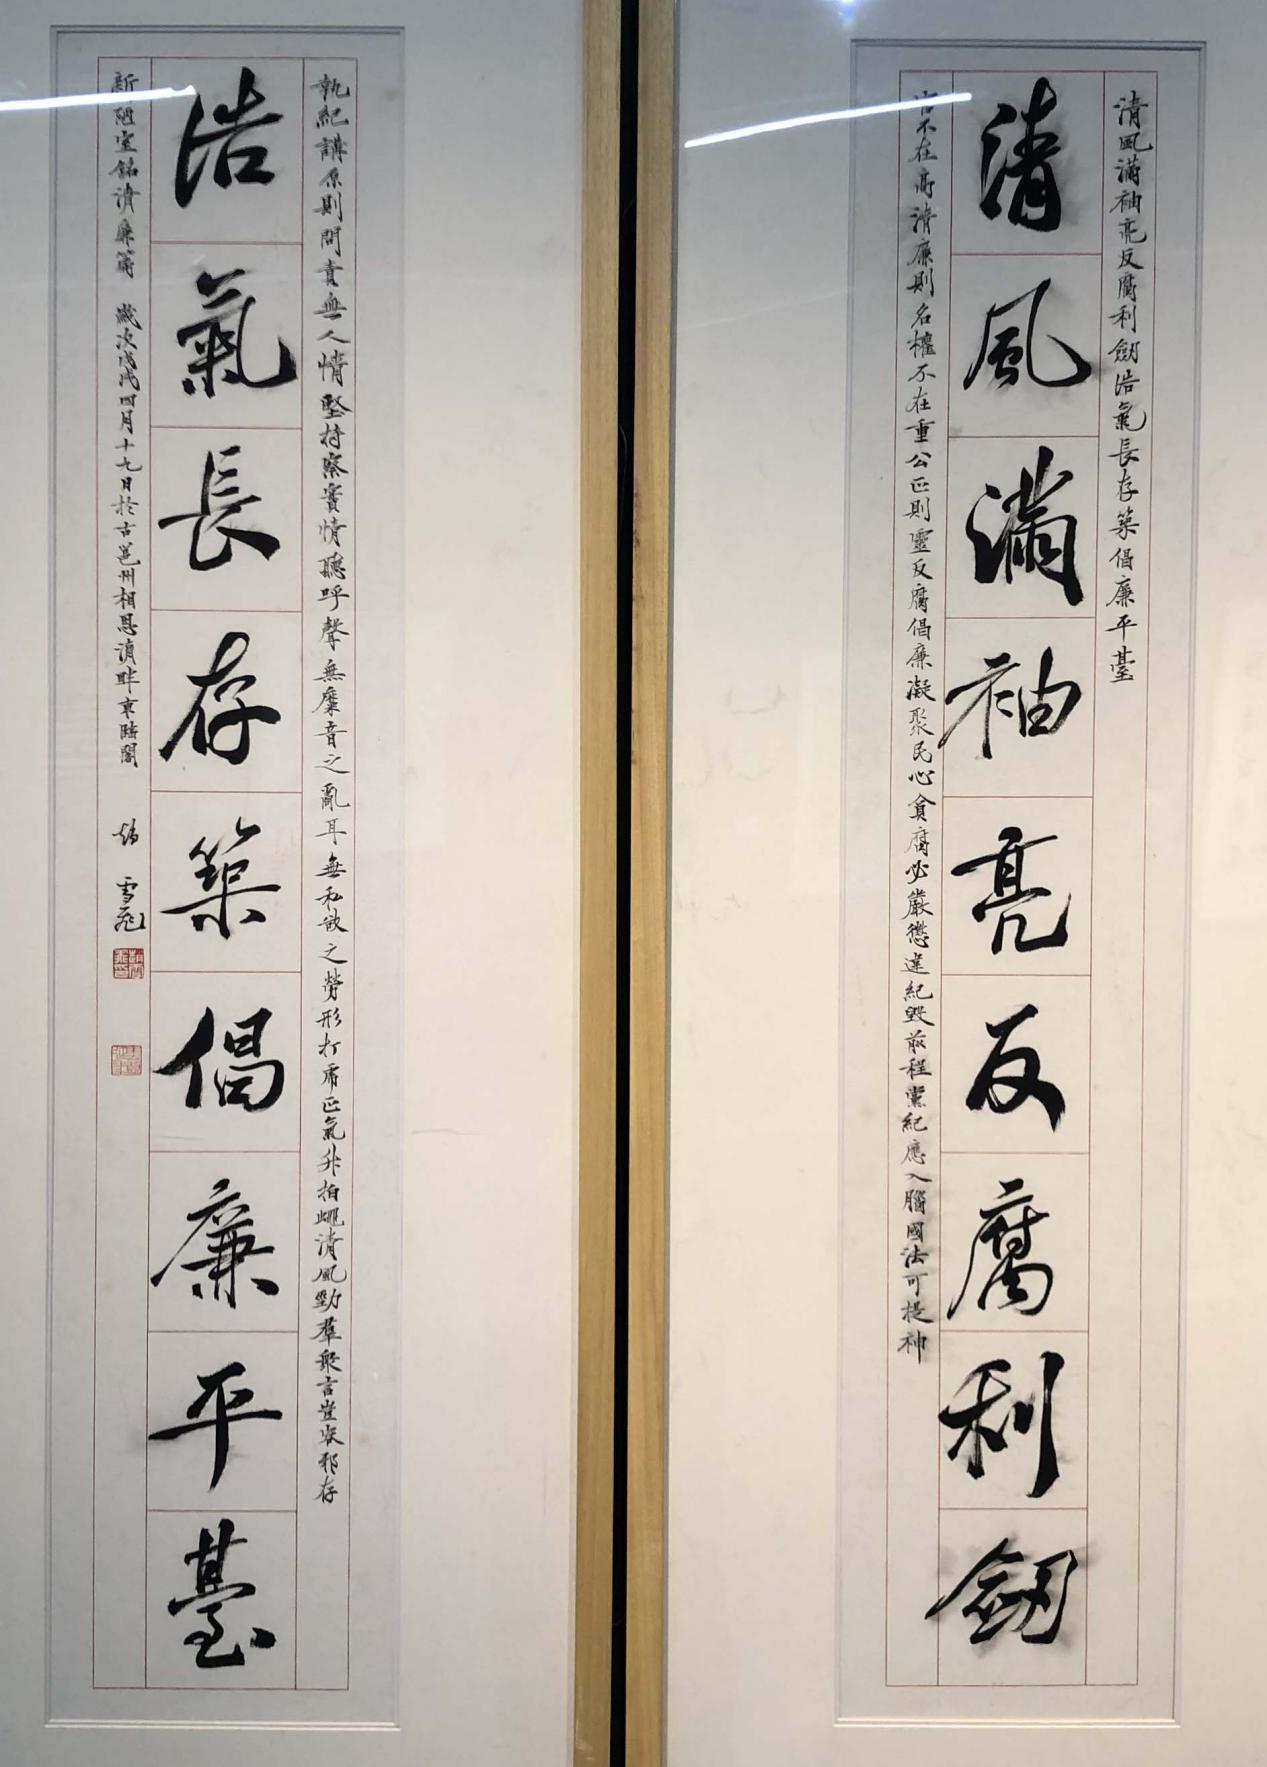 清風滿袖亮反腐利劍浩氣長存築倡廉平臺
清風滿袖亮反腐利劍
官不在高清廉則名權不在重公正則靈反腐倡廉凝聚民心貪腐必嚴懲違紀毀前程黨紀應入腦國法可提神
執紀講原則問責無人情堅持察實情聽呼聲無靡音之亂耳無私欲之勞形打虎正氣升拍蠅清風勁羣眾言豈容邪存
浩氣長存築倡廉平臺
新陋室銘清廉篇 歲次戊戌四月十九日於古邕州相思湖畔東 閣 趙雪飛